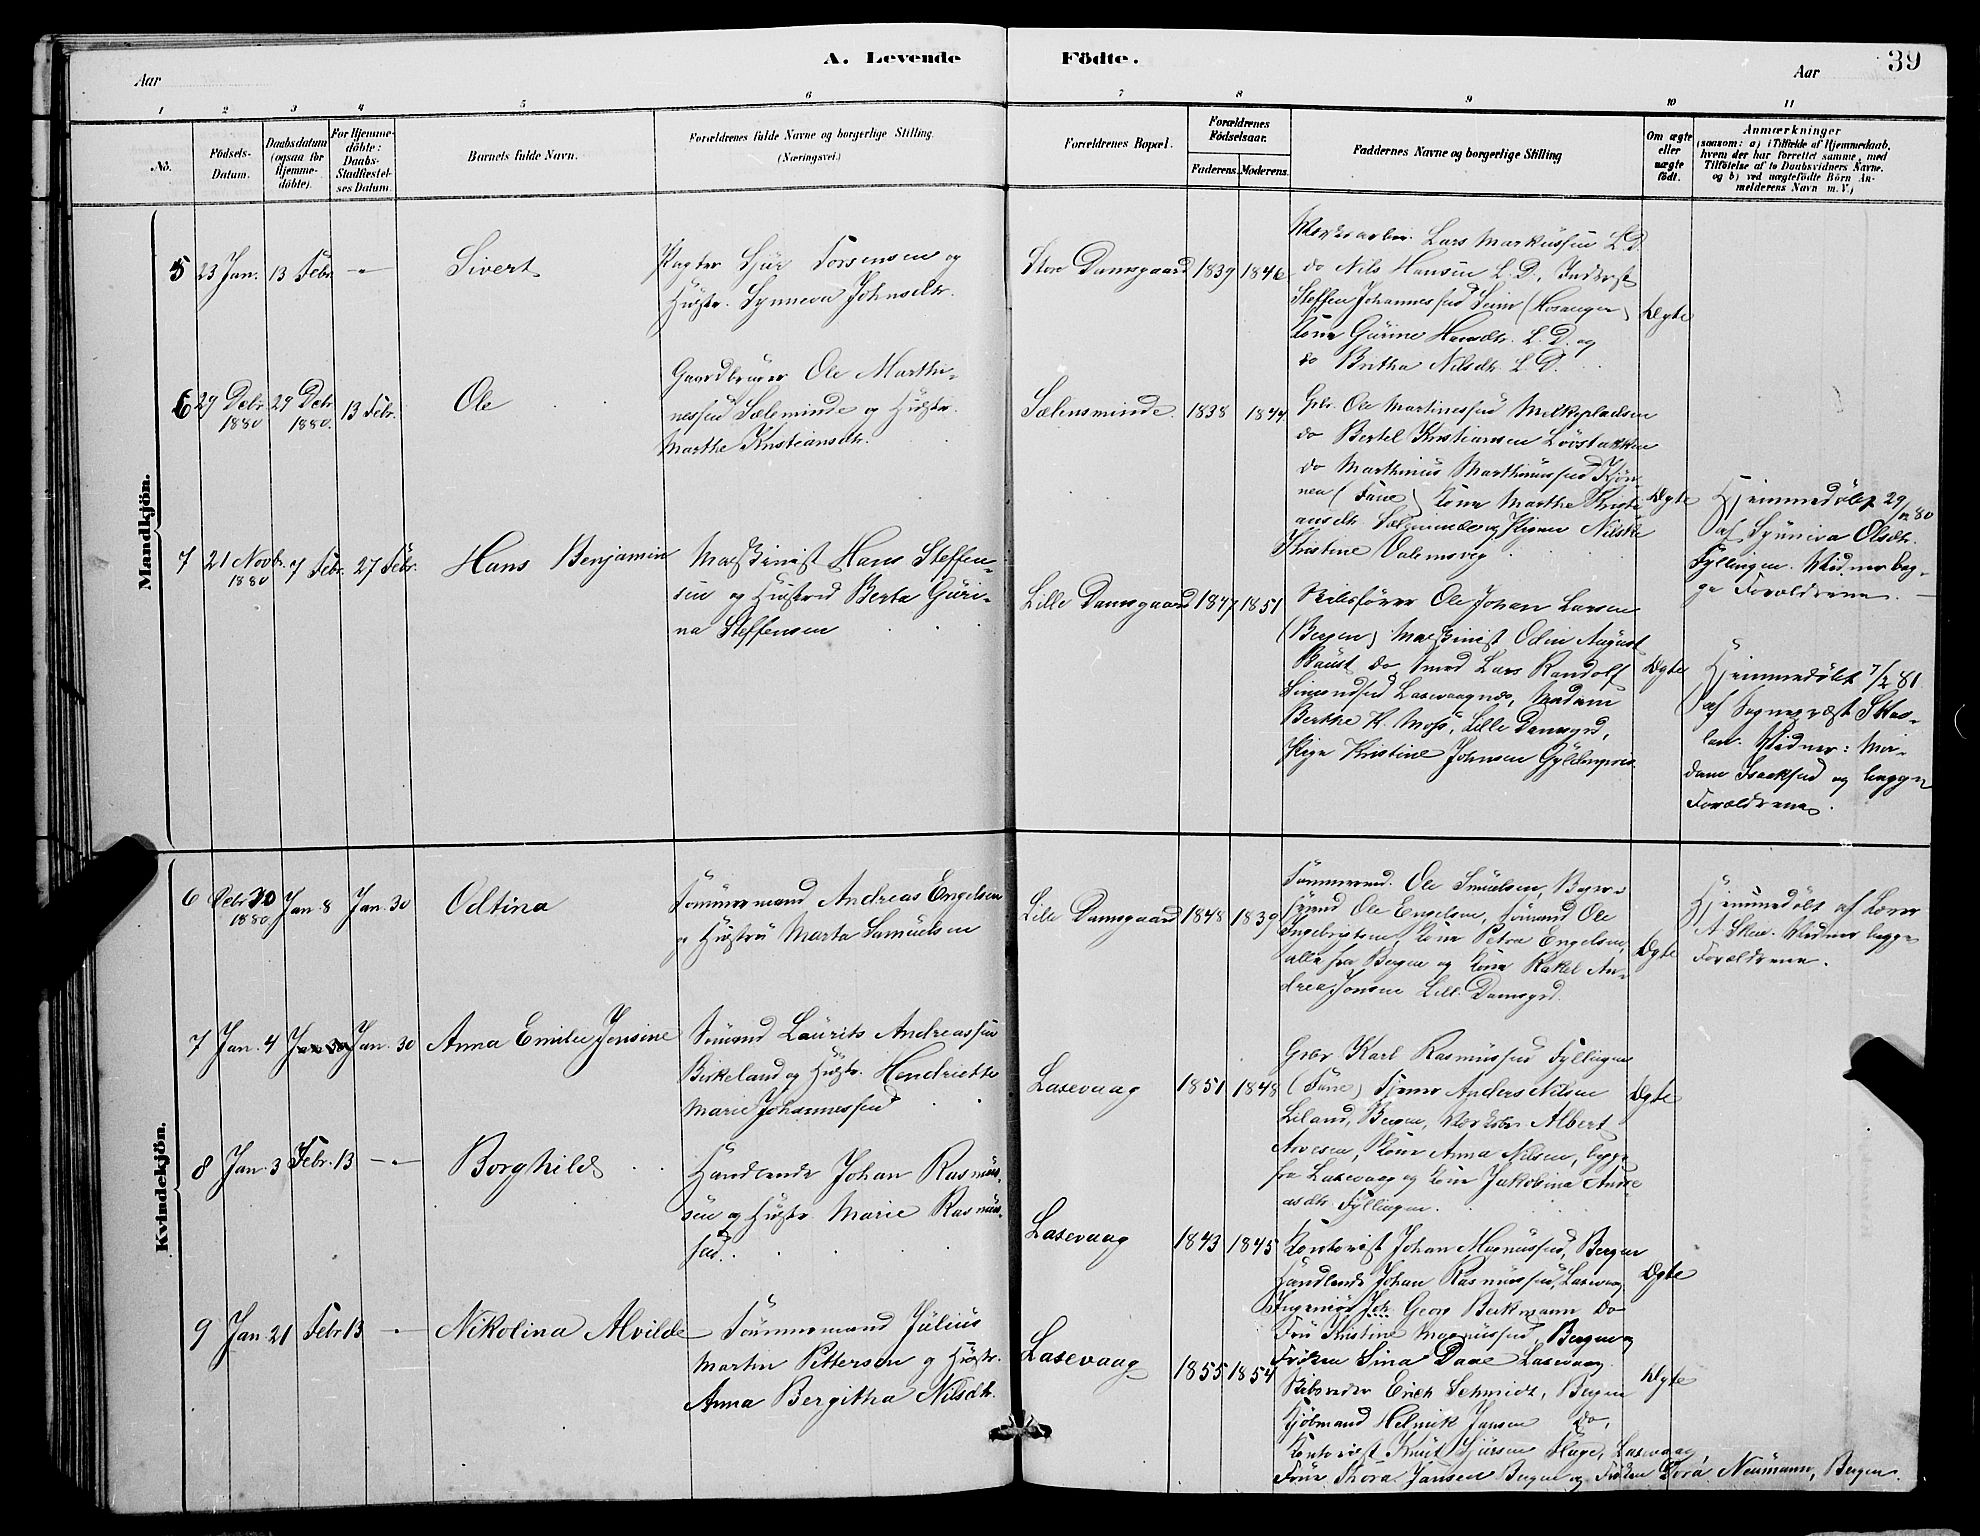 A. Levende Födte.
39
Aar
Aar
1 2 3 4 5 6 7 8 9 10 11
No.
Födsels-
Datum.
Daabsdatum
(ogsaa for
Hjemme-
döbte).
For Hjemme-
döbte:
Daabs-
Stadfæstel-
ses Datum.
Barnets fulde Navn.
Forældrenes fulde Navne og borgerlige Stilling.
(Næringsvei.)
Forældrenes Bopæl.
Forældrenes
Födselsaar.
Faderens.
Moderens.
Faddernes Navne og borgerlige Stilling
Om ægte
eller
uægte
födt.
Anmærkninger
(saasom: a) i Tilfælde af Hjemmedaab,
hvem der har forrettet samme, med
Tilföielse af to Daabsvidners Navne.
og b) ved uægtefödte Börn An-
melderens Navn m. V.)
Mandkjön.
5
23 Jan.
13 Febr.
Sivert
Sjur Torsensen og
Hustr. Synneva Johnsdtr.
Store Damsgaard
1839
1846
Lars Markussen L.D.
do Nils Hansen L.D., Inderst
Steffen Johannessen Seim (Hosanger)
Kone Gurine Hansdtr. L.D. og
do Britha Nilsdtr. L.D.
Ægte
6
29 Debr.
1880
29 Debr.
1880.
13 Febr.
Ole
Gaardbruger Ole Marthi-
nessen Sæleminde og Hustr.
Marthe Kristiansdtr.
Sælensminde.
1838
1844
Gbr. Ole Martinessen Melkepladsen
do Bertel Kristiansen Lövstakken
do Marthinus Marthinussen
(Fane) Kone Marthe Kristi-
ansdtr. Sæleminde og Pigen
Kristine
Ægte
Hjemmedøbt 29/12 80
af Synneva Olsdtr.
Fyllingen. Vidner beg-
ge Forældrene.
7
21 Novbr.
1880
7 Febr.
27 Febr.
Hans Benjamin
Maskinist Hans Steffen-
sen og Hustru Berta Guri-
na Steffensen
Lille Damsgaard
1847
1851
Skibsfører Ole Johan Larsen
(Bergen) Maskinist Odin August
do Smed Lars Randolf
Simonsen Laxevaagnæs, Madam
Berthe H. Moss, Lille Damsgrd,
Pige Kristine Johnsen Gyldenpris
Ægte
Hjemmedøbt 7/2 81
af Sognepræst
Vidner: Ma-
dam Isaksen og begge
Forældrene.
Kvindekjön.
6
Debr 30
1880
Jan. 8
Jan. 30
Odtina
Tømmermand Andreas Engelsen
og Hustru Marta Samuelsen
Lille Damsgaard
1848
1839
Tømmermd. Ole Smuelsen,
Ole Engelsen, Sömand Ole
Ingebrigtsen, Kone Petra Engelsen,
alle fra Bergen og Kone Rakel An-
drea Jonsen Lill. Damsgrd.
Ægte
Hjemmedøbt af Lærer
A. Skre. Vidner begge
Forældrene.
7
Jan. 4
Jan. 30
Jan. 30
Anna Emilie Jensine
Sömand Laurits Andreassen
Birkeland og Hustr. Hendriette
Marie Johannessen
Laxevaag
1851
1848
Gbr. Karl Rasmussen Fyllingen
(Fane) Tjener Anders Nilsen
Liland, Bergen, Albert
Arvesen, Kone Anna Nilsen, begge
fra Laxevaag og Kone Jakobina Andre-
asdtr. Fyllingen.
Ægte
8
Jan. 3
Febr. 13
Borghild
Handlende Johan Rasmus-
sen og Hustr. Marie Rasmus-
sen.
Laxevaag
1843
1845
Kontorist Johan Magnussen, Bergen
Handlende Johan Rasmussen, Laxevaag
Ingeniør Joh. Georg Beckmann do
Fru Kristine Magnussen, Bergen og
Fröken Sina Daae Laxevaag.
Ægte
9
Jan. 21
Febr. 13
Nikolina Alvilde
Tömmermand Julius
Martin Pettersen og Hustr.
Anna Bergitha Nilsdtr.
Laxevaag
1855
1854
Skibsreder Erich Schmidt, Bergen
Kjöbmand Helmik Jansen do,
Kontorist Knut Sjursen Fluge, Laxevaag
Frue Thora Jansen Bergen og Fröken Dora Neumann, Bergen.
Ægte